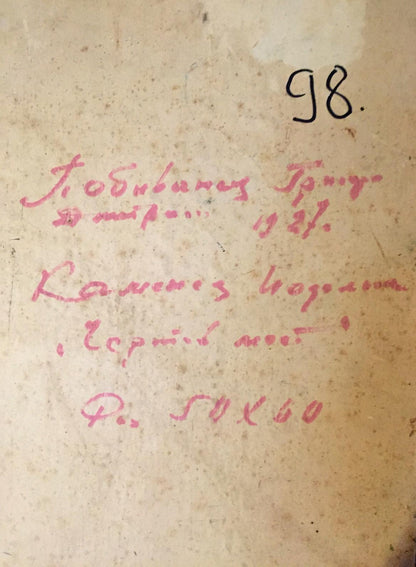 98.
Побиванец Григор
Дмитри.. 1927.
Каменец Подольск
"Чертов мост"
Раз 50X60